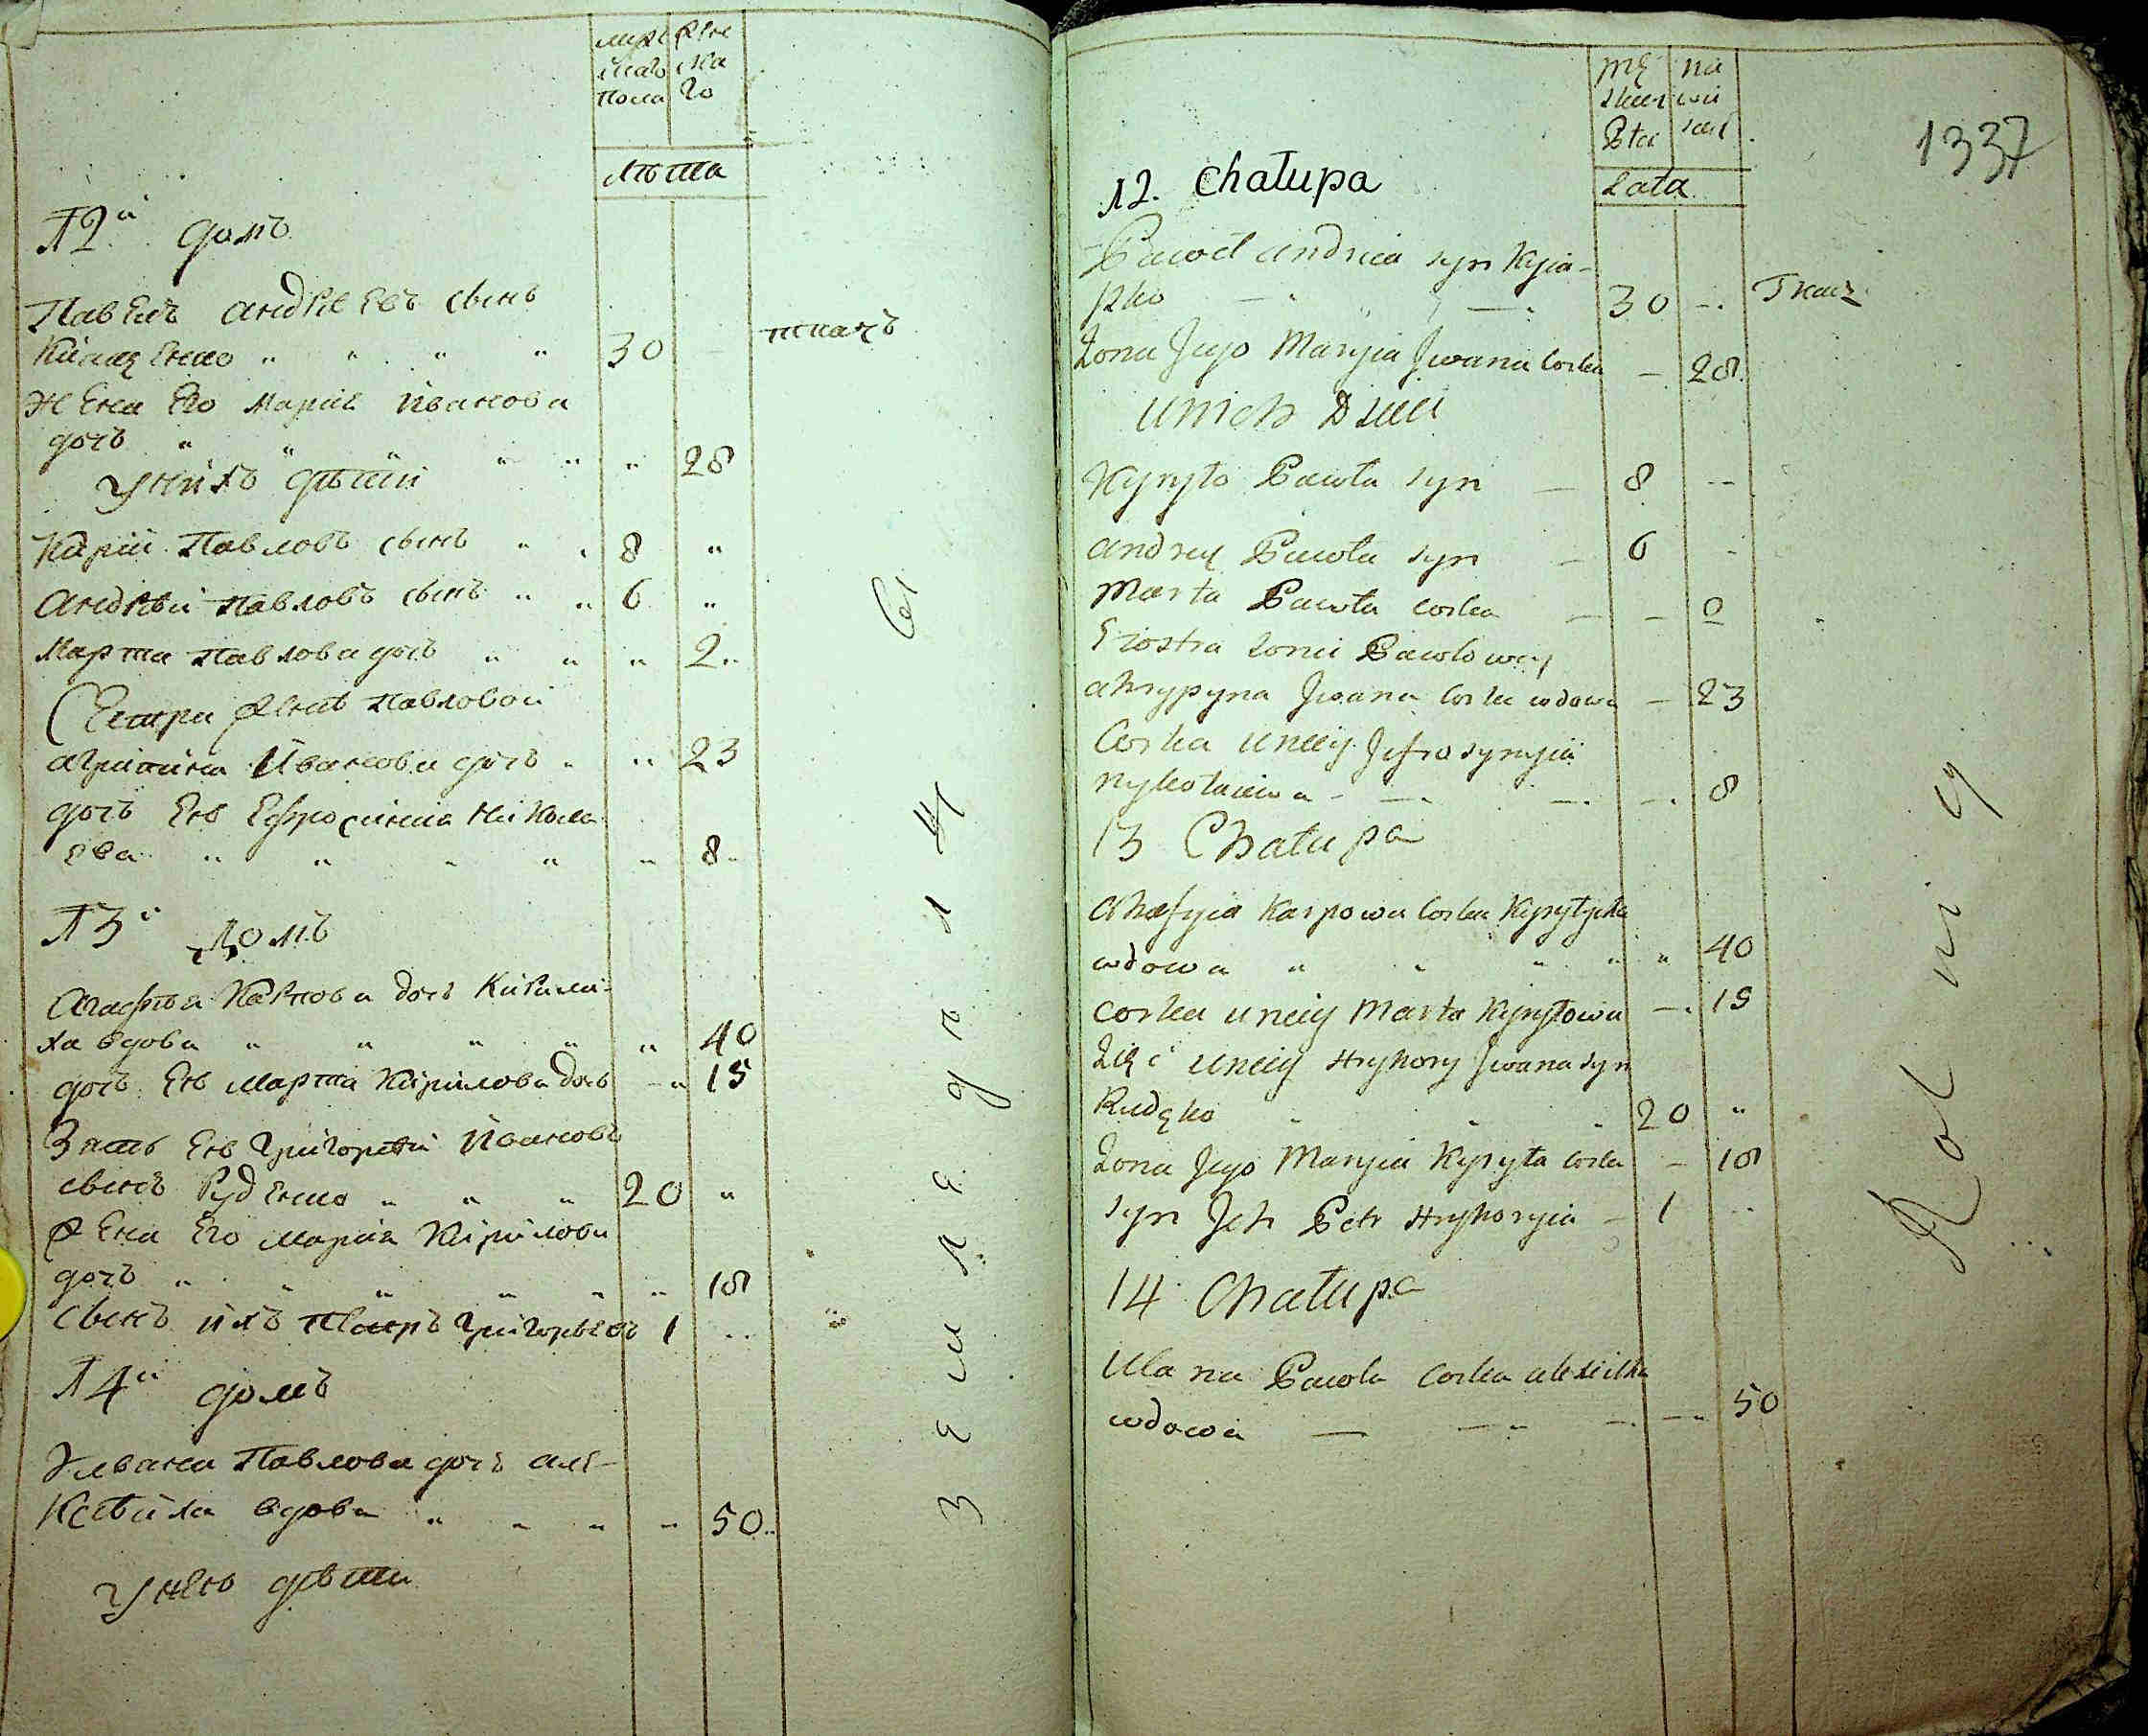 муж женска
скаго
пола го
лѣта
12й домъ
Павелъ андрѣевъ сынъ
Кияшенко 30 ткачъ
Жена Его Марія Иванова
дочъ 28
У нихъ дѣти
Кирій Павловъ сынъ 8
Андрѣй Павловъ сынъ 6
Марта Павлова дочъ 2
Сестра женѣ Павловой
агрипина Иванова дочъ 23
дочъ Ев Ефросиния Никола
ева 8
13й Домъ
Агафія Карпова дочъ Кирили
ха вдова 40
дочъ Ев Марта Кирилова дочъ 15
Зять Ев Григорей Ивановъ
сынъ Руденко 20
Жена Его Марія Кирилова
дочъ 18
сынъ ихъ Петръ Григорьевъ 1
14й домъ
Ульяна Павлова дочъ але-
ксѣиха вдова 50
У неи дѣти
Земледелецъ
mę na
Płci
Lata
1337
12. Chałupa
Paweł andrea syn Kyia-
szko 30 Tkacz
Zona Jego Maryia Jwana corka 28
u nich Dzieci
Kyryło Pawła syn 8
andrey Pawła syn 6
Marta Pawła corka 2
Siostra zonie Pawłowey
ahrypyna Jwana corka wdowa 23
Corka u niey Jefrosynyia
nykołaiewa 8
13 Chałupa
ahafyia Karpowa corka Kyryłycha
wdowa 40
corka u niey Marta Kyryłowa 15
Zięć u niey Hryhory Jwana syn
Rudęko 20
Zona Jego Maryia Kyryła corka 18
syn Jch Petr Hryhoryia 1
14 Chałupa
Ulana Pawła corka alexiicha
wdowa 50
Rolniy